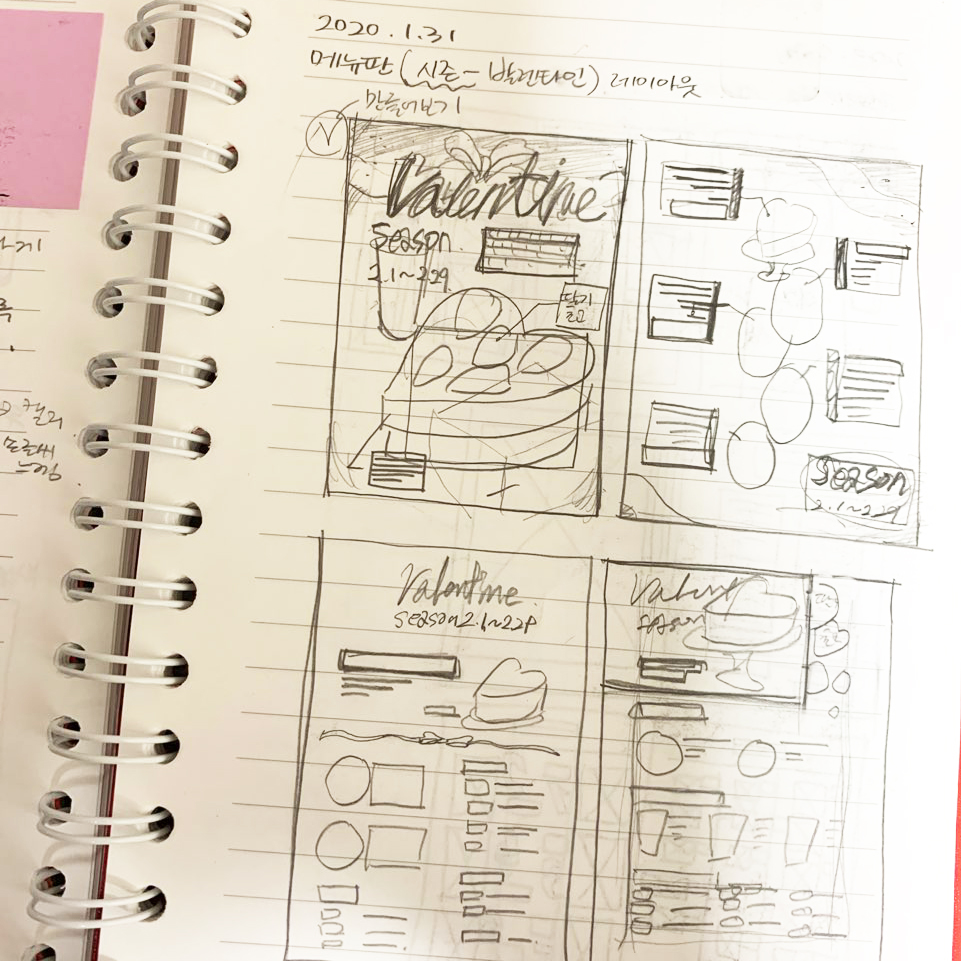 2020.1.31
메뉴판 (시즌- 발렌타인) 레이아웃
만들어보기
Valentine
season
2.1~229
딸기
season
2.1~229
Valentine
season 2.1~229
Valent
season
컬러
느낌